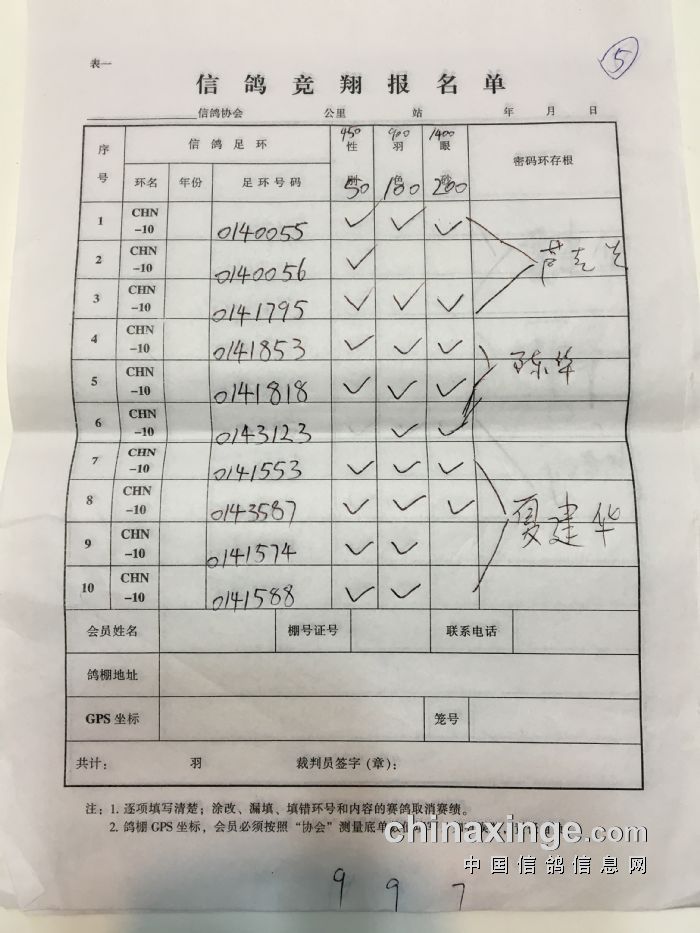 表一
⑤
信鸽竞翔报名单
信鸽协会 公里 站 年 月 日
450 900 1400
序号 信鸽足环 性 羽 眼 密码环存根
环名 年份 足环号码 50 色 100 砂 200
1 CHN-10 0140055 ✓ ✓ ✓
2 CHN-10 0140056 ✓
3 CHN-10 0141795 ✓ ✓ ✓
4 CHN-10 0141853 ✓ ✓ ✓
陈华
5 CHN-10 0141818 ✓ ✓ ✓
6 CHN-10 0143123 ✓ ✓
7 CHN-10 0141553 ✓ ✓ ✓
8 CHN-10 0143587 ✓ ✓ ✓
夏建华
9 CHN-10 0141574 ✓ ✓
10 CHN-10 0141588 ✓ ✓
会员姓名 棚号证号 联系电话
鸽棚地址
GPS 坐标 笼号
共计: 羽 裁判员签字(章):
注: 1. 逐项填写清楚; 涂改、漏填、填错环号和内容的赛鸽取消赛绩。
2. 鸽棚 GPS 坐标, 会员必须按照“协会”测量底单
chinaxinge.com
中国信鸽信息网
9 9 7